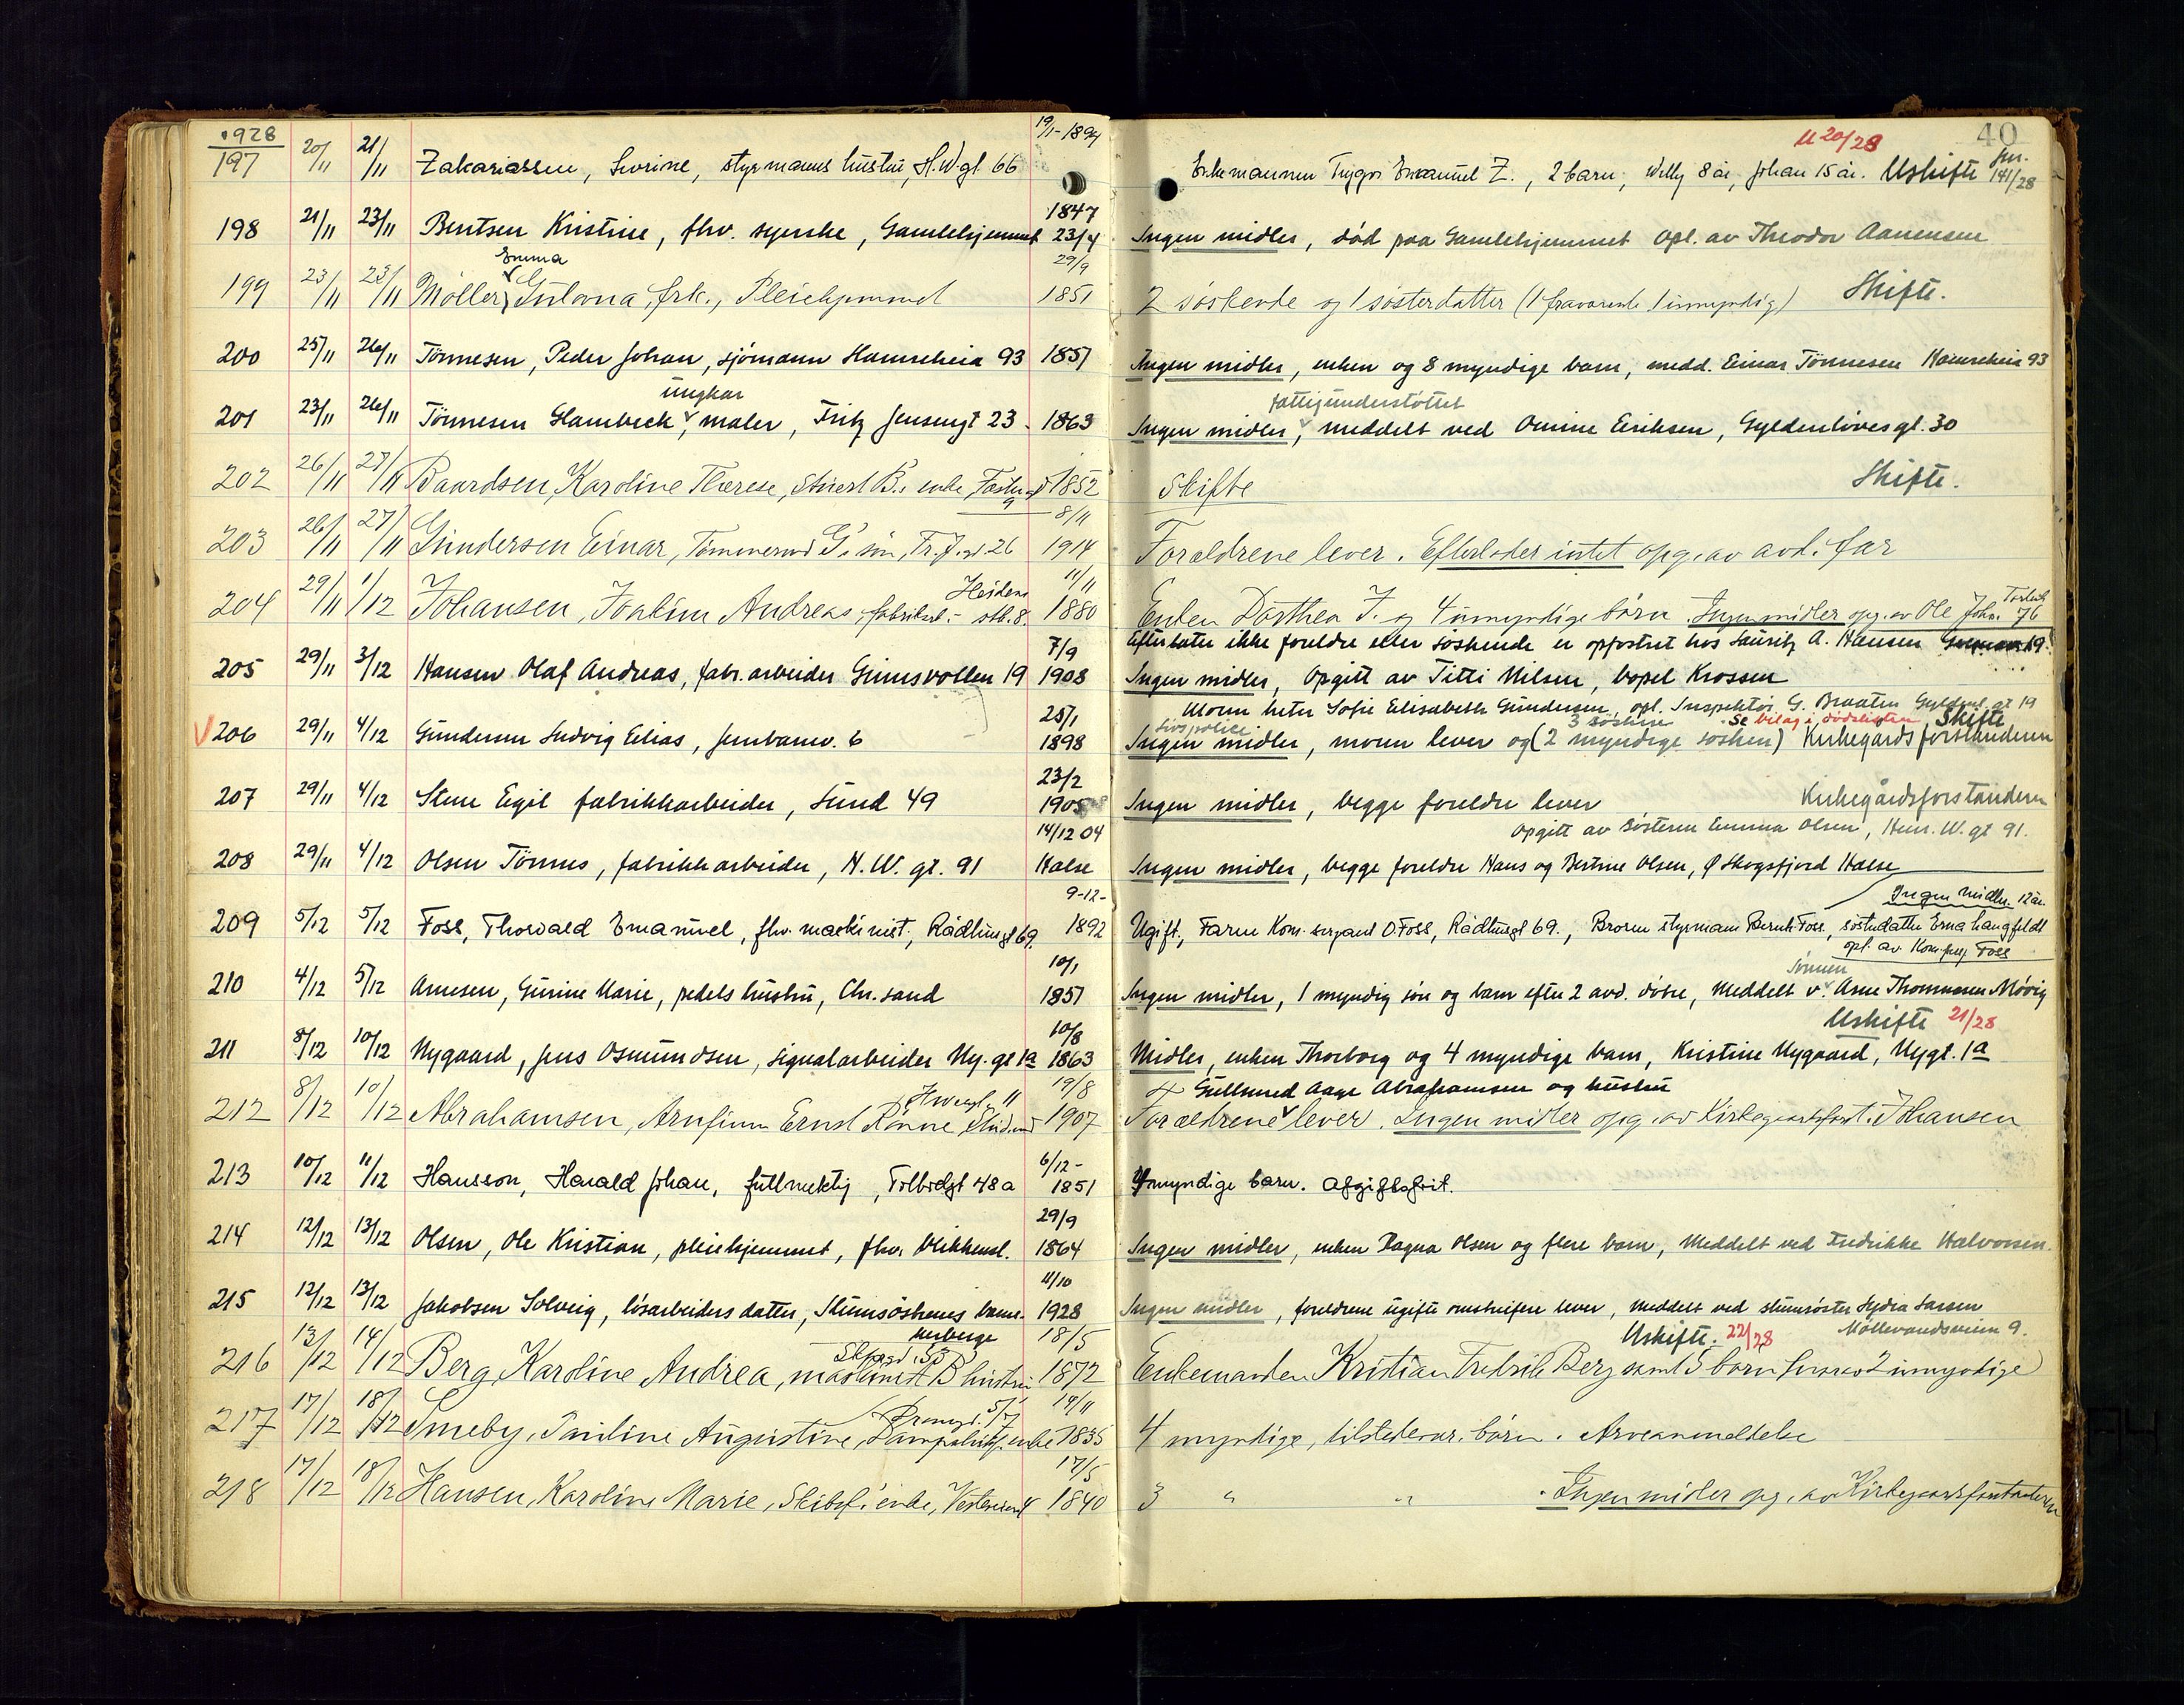 1928 19/1-1894 40
197 20/11 21/11 Zakariassen, Severine, styrmanns hustru, H.W.gt 66 Enkemannen Trygve Emanuel Z., 2 barn, Willy 8 år, Johan 15 år. Uskifte 141/28
U 20/28
198 21/11 23/11 Bentsen Kristine, fhv. syerske, Gamlehjemmet 1847 23/4 Ingen midler, død paa Gamlehjemmet opl. av Theodor Aanensen
Emma 29/9
199 23/11 23/11 Møller, frk., Pleiehjemmet 1851 2 søskende og 1 søsterdatter (1 fraværende 1 umyndig) Skifte.
200 25/11 26/11 Tönnesen, Peder Johan, sjömann Hamreheia 93 1857 Ingen midler, enken og 8 myndige barn, medd. Einar Tönnesen Hamreheia 93
ungkar fattigunderstöttet
201 23/11 26/11 Tönnesen Hambeck, maler, Fritz Jensengt 23 1863 Ingen midler, meddelt ved Omine Eriksen, Gyldenlövesgt. 30
202 26/11 27/11 Baardsen, Karoline Therese, B.s enke 1852 Skifte Skifte.
8/11
203 26/11 27/11 Gundersen Einar, Tømmermd G's søn, Fr. J. gt 26 1914 Forældrene lever. Efterlader intet opg. av avd. far
11/11
204 29/11 1/12 Johansen, Joakim Andreas, fabrikarb. stb. 8 1880 Enken Dorthea J. og 4 umyndige børn. Ingen midler opg. av Ole Joh. 76
7/9 Efterlater ikke foreldre eller söskende er opfostret hos Lauritz A. Hansen 19.
205 29/11 3/12 Hansen Olaf Andreas, fabr.arbeider Grimsvollen 19 1908 Ingen midler, Opgitt av Titti Nilsen, bopel Krossen
25/1 Moren heter Sofie Elisabeth Gundersen, opl. Inspektör G. Braaten Gyldenl. gt 19
Livspolice 3 söskene Se bilag i dödslisten, Skifte
V 206 29/11 4/12 Gundersen Ludvig Elias, Jernbanev. 6 1898 Ingen midler, moren lever og (2 myndige søsken) Kirkegårdsforstanderen
23/2
207 29/11 4/12 Stene Egil fabrikkarbeider, Lund 49 1905 Ingen midler, begge foreldre lever Kirkegårdsforstanderen
14/12 04 Opgitt av søsteren Emma Olsen, Henr. W. gt 91.
208 29/11 4/12 Olsen Tönnes, fabrikkarbeider, H. W. gt. 91 Halse Ingen midler, begge foreldre Hans og Bertine Olsen, Ø Skogsfjord Halse
9-12- Ingen midler. 12 år.
209 5/12 5/12 Foss, Thorvald Emanuel, fhv. maskinist, Rådhusgt 69. 1892 Ugift, Faren Kom. sersjant O. Foss, Rådhusgt 69., Broren styrmann Bernh. Foss, søsterdatter Erna Langfeldt
opl. av Kom.serj. Foss
10/1 Sönnen
210 4/12 5/12 Arnesen, Gurine Marie, pedels hustru, Chr.sand 1857 Ingen midler, 1 myndig sön og barn efter 2 avd. dötre, Meddelt v. Arne Thommesen Mövig
10/8 Uskifte 21/28
211 8/12 10/12 Nygaard, Jens Osmundsen, signalarbeider Ny. gt 1a 1863 Midler, enken Thorborg og 4 myndige barn, Kristine Nygaard, Nygt. 1a
11 19/8 Gullsmed Aage Abrahamsen og hustru
212 8/12 10/12 Abrahamsen, Arnfinn Ernst Rönne, Student 1907 Forældrene lever. Ingen midler opg. av Kirkegaardsforst. Johansen
6/12-
213 10/12 11/12 Hansson, Harald Johan, fullmektig, Tolbodgt 48a 1851 4 myndige barn. Afgiftsfrit.
29/9
214 12/12 13/12 Olsen, Ole Kristian, pleiehjemmet, fhv. blikkensl. 1864 Ingen midler, enken Dagna Olsen og flere barn, Meddelt ved Fredrikke Halvorsen.
11/10
215 12/12 13/12 Jakobsen Solveig, lösarbeiders datter, Slumsöstrenes barne- 1928 Ingen midler, foreldrene ugifte omstreifere lever, meddelt ved slumsöster Lydia Larsen
herberge 18/5 Uskifte. 22/28 Möllevandsveien 9.
216 13/12 14/12 Berg, Karoline Andrea, maskinist B hustru 1872 Enkemanden Kristian Fredrik Berg samt 5 barn hvorav 2 umyndige
19/11
217 17/12 18/12 Smeby, Pauline Augustine, enke 1835 4 myndige, tilstedevær. börn. Arveanmeldelse
17/5
218 17/12 18/12 Hansen, Karoline Marie, Skibsf. enke, 4 1840 3 " " Ingen midler opg. av Kirkegaardsforstanderen